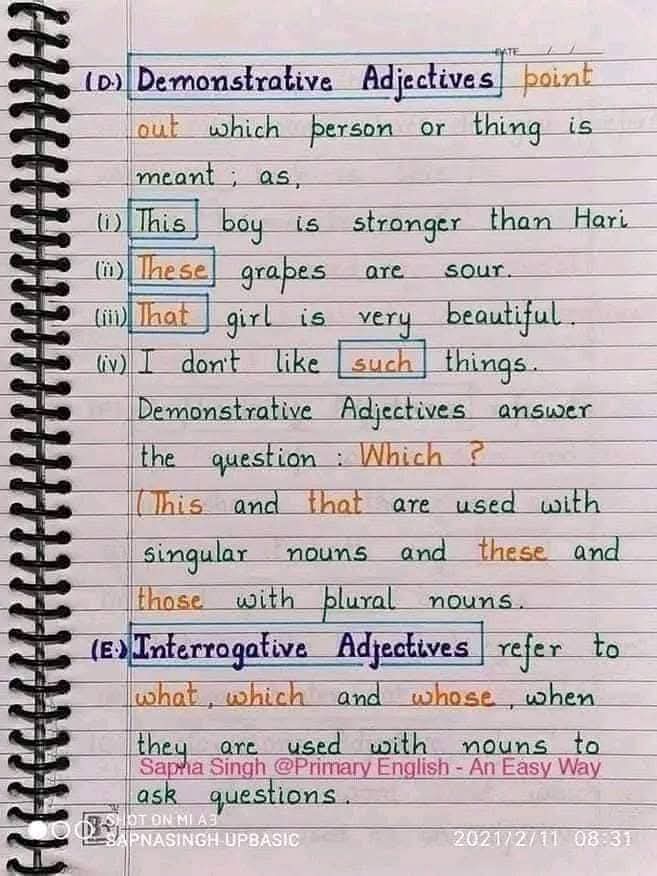 DATE / /
(D.) Demonstrative Adjectives point
out which person or thing is
meant ; as,
(i) This boy is stronger than Hari
(ii) These grapes are sour.
(iii) That girl is very beautiful.
(iv) I don't like such things.
Demonstrative Adjectives answer
the question : Which ?
(This and that are used with
singular nouns and these and
those with plural nouns.
(E.) Interrogative Adjectives refer to
what, which and whose, when
they are used with nouns to
Sapna Singh @Primary English - An Easy Way
ask questions.
SHOT ON MI A3
SAPNASINGH UPBASIC 2021/2/11 08:31